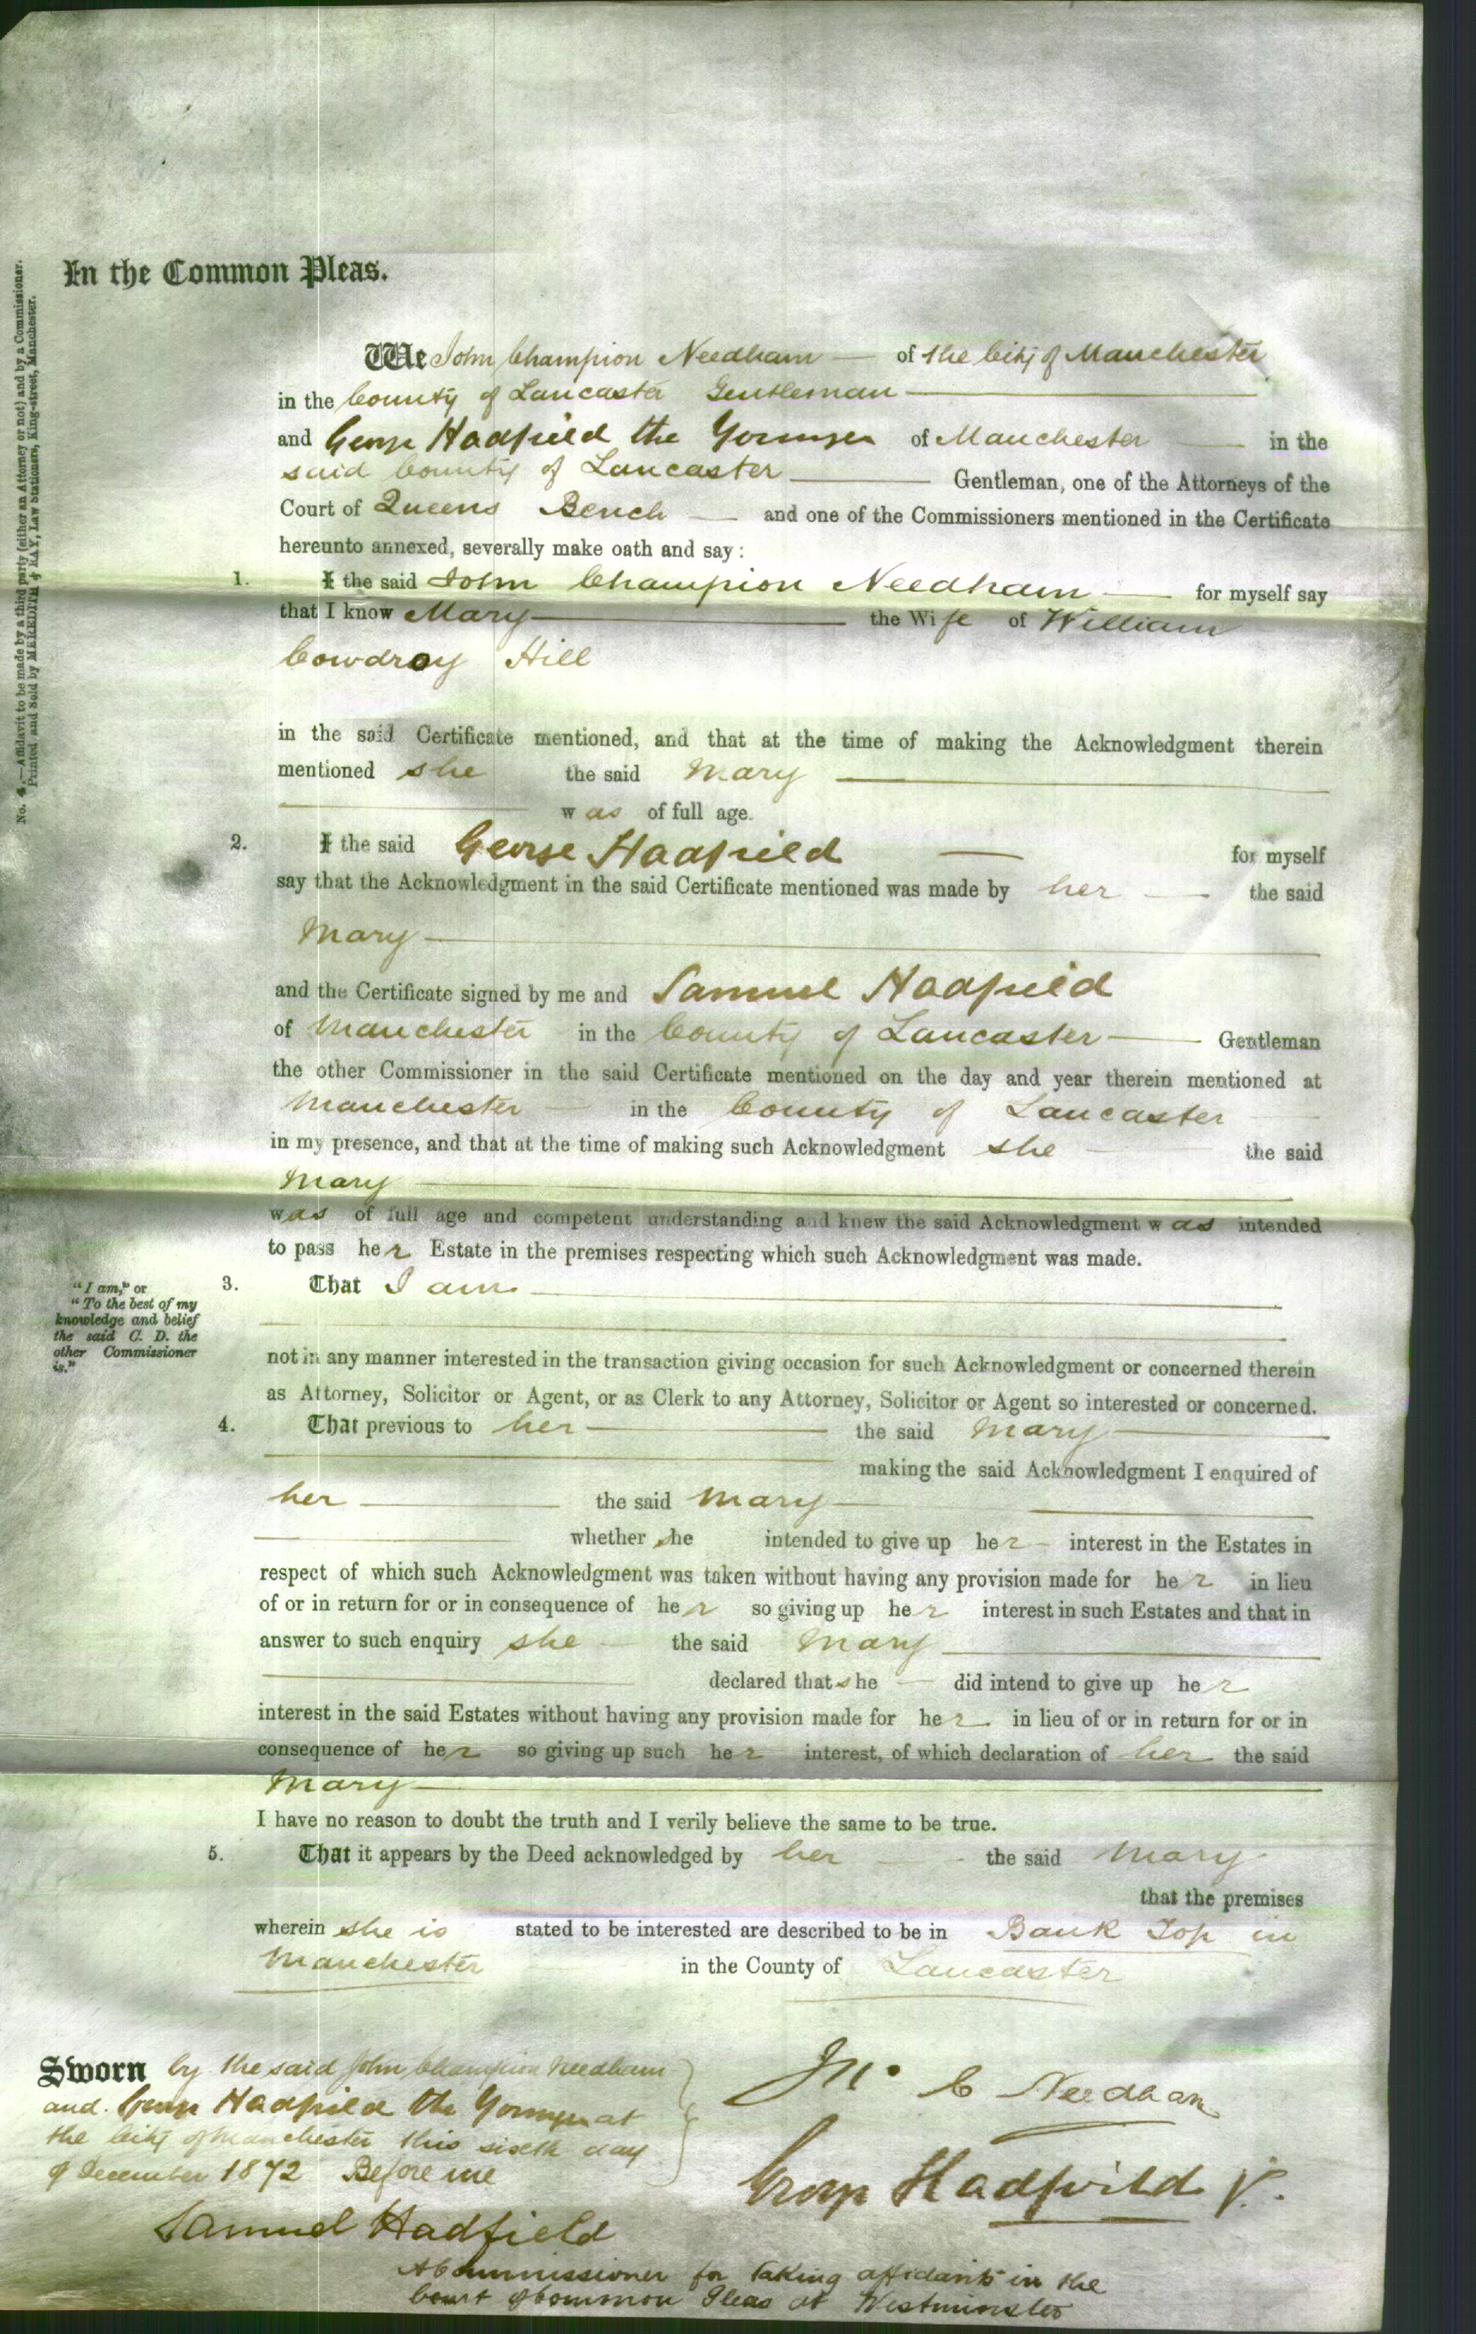 No. 4.—Affidavit to be made by a third party (either an Attorney or not) and by a Commissioner.
Printed and Sold by MEREDITH & RAY, Law Stationers, King-street, Manchester.
In the Common Pleas.
We John Champion Needham of the City of Manchester
in the County of Lancaster Gentleman
and George Hadfield the Younger of Manchester in the
said County of Lancaster Gentleman, one of the Attorneys of the
Court of Queens Bench and one of the Commissioners mentioned in the Certificate
hereunto annexed, severally make oath and say:
1. I the said John Champion Needham for myself say
that I know Mary the Wife of William
Cowdroy Hill
in the said Certificate mentioned, and that at the time of making the Acknowledgment therein
mentioned she the said Mary
was of full age.
2. I the said George Hadfield for myself
say that the Acknowledgment in the said Certificate mentioned was made by her the said
Mary
and the Certificate signed by me and Samuel Hadfield
of Manchester in the County of Lancaster Gentleman
the other Commissioner in the said Certificate mentioned on the day and year therein mentioned at
Manchester in the County of Lancaster
in my presence, and that at the time of making such Acknowledgment she the said
Mary
was of full age and competent understanding and knew the said Acknowledgment was intended
to pass her Estate in the premises respecting which such Acknowledgment was made.
"I am," or
"To the best of my
knowledge and belief
the said C. D. the
other Commissioner
is."
3. That I am
not in any manner interested in the transaction giving occasion for such Acknowledgment or concerned therein
as Attorney, Solicitor or Agent, or as Clerk to any Attorney, Solicitor or Agent so interested or concerned.
4. That previous to her the said Mary
making the said Acknowledgment I enquired of
her the said Mary
whether she intended to give up her interest in the Estates in
respect of which such Acknowledgment was taken without having any provision made for her in lieu
of or in return for or in consequence of her so giving up her interest in such Estates and that in
answer to such enquiry she the said Mary
declared that she did intend to give up her
interest in the said Estates without having any provision made for her in lieu of or in return for or in
consequence of her so giving up such her interest, of which declaration of her the said
Mary
I have no reason to doubt the truth and I verily believe the same to be true.
5. That it appears by the Deed acknowledged by her the said Mary
that the premises
wherein she is stated to be interested are described to be in Bank Top in
Manchester in the County of Lancaster
Sworn by the said John Champion Needham
and George Hadfield the Younger at
the City of Manchester this sixth day
of December 1872 Before me
Samuel Hadfield
A Commissioner for taking affidavits in the
Court of Common Pleas at Westminster
Jn. C Needham
George Hadfield Jr.